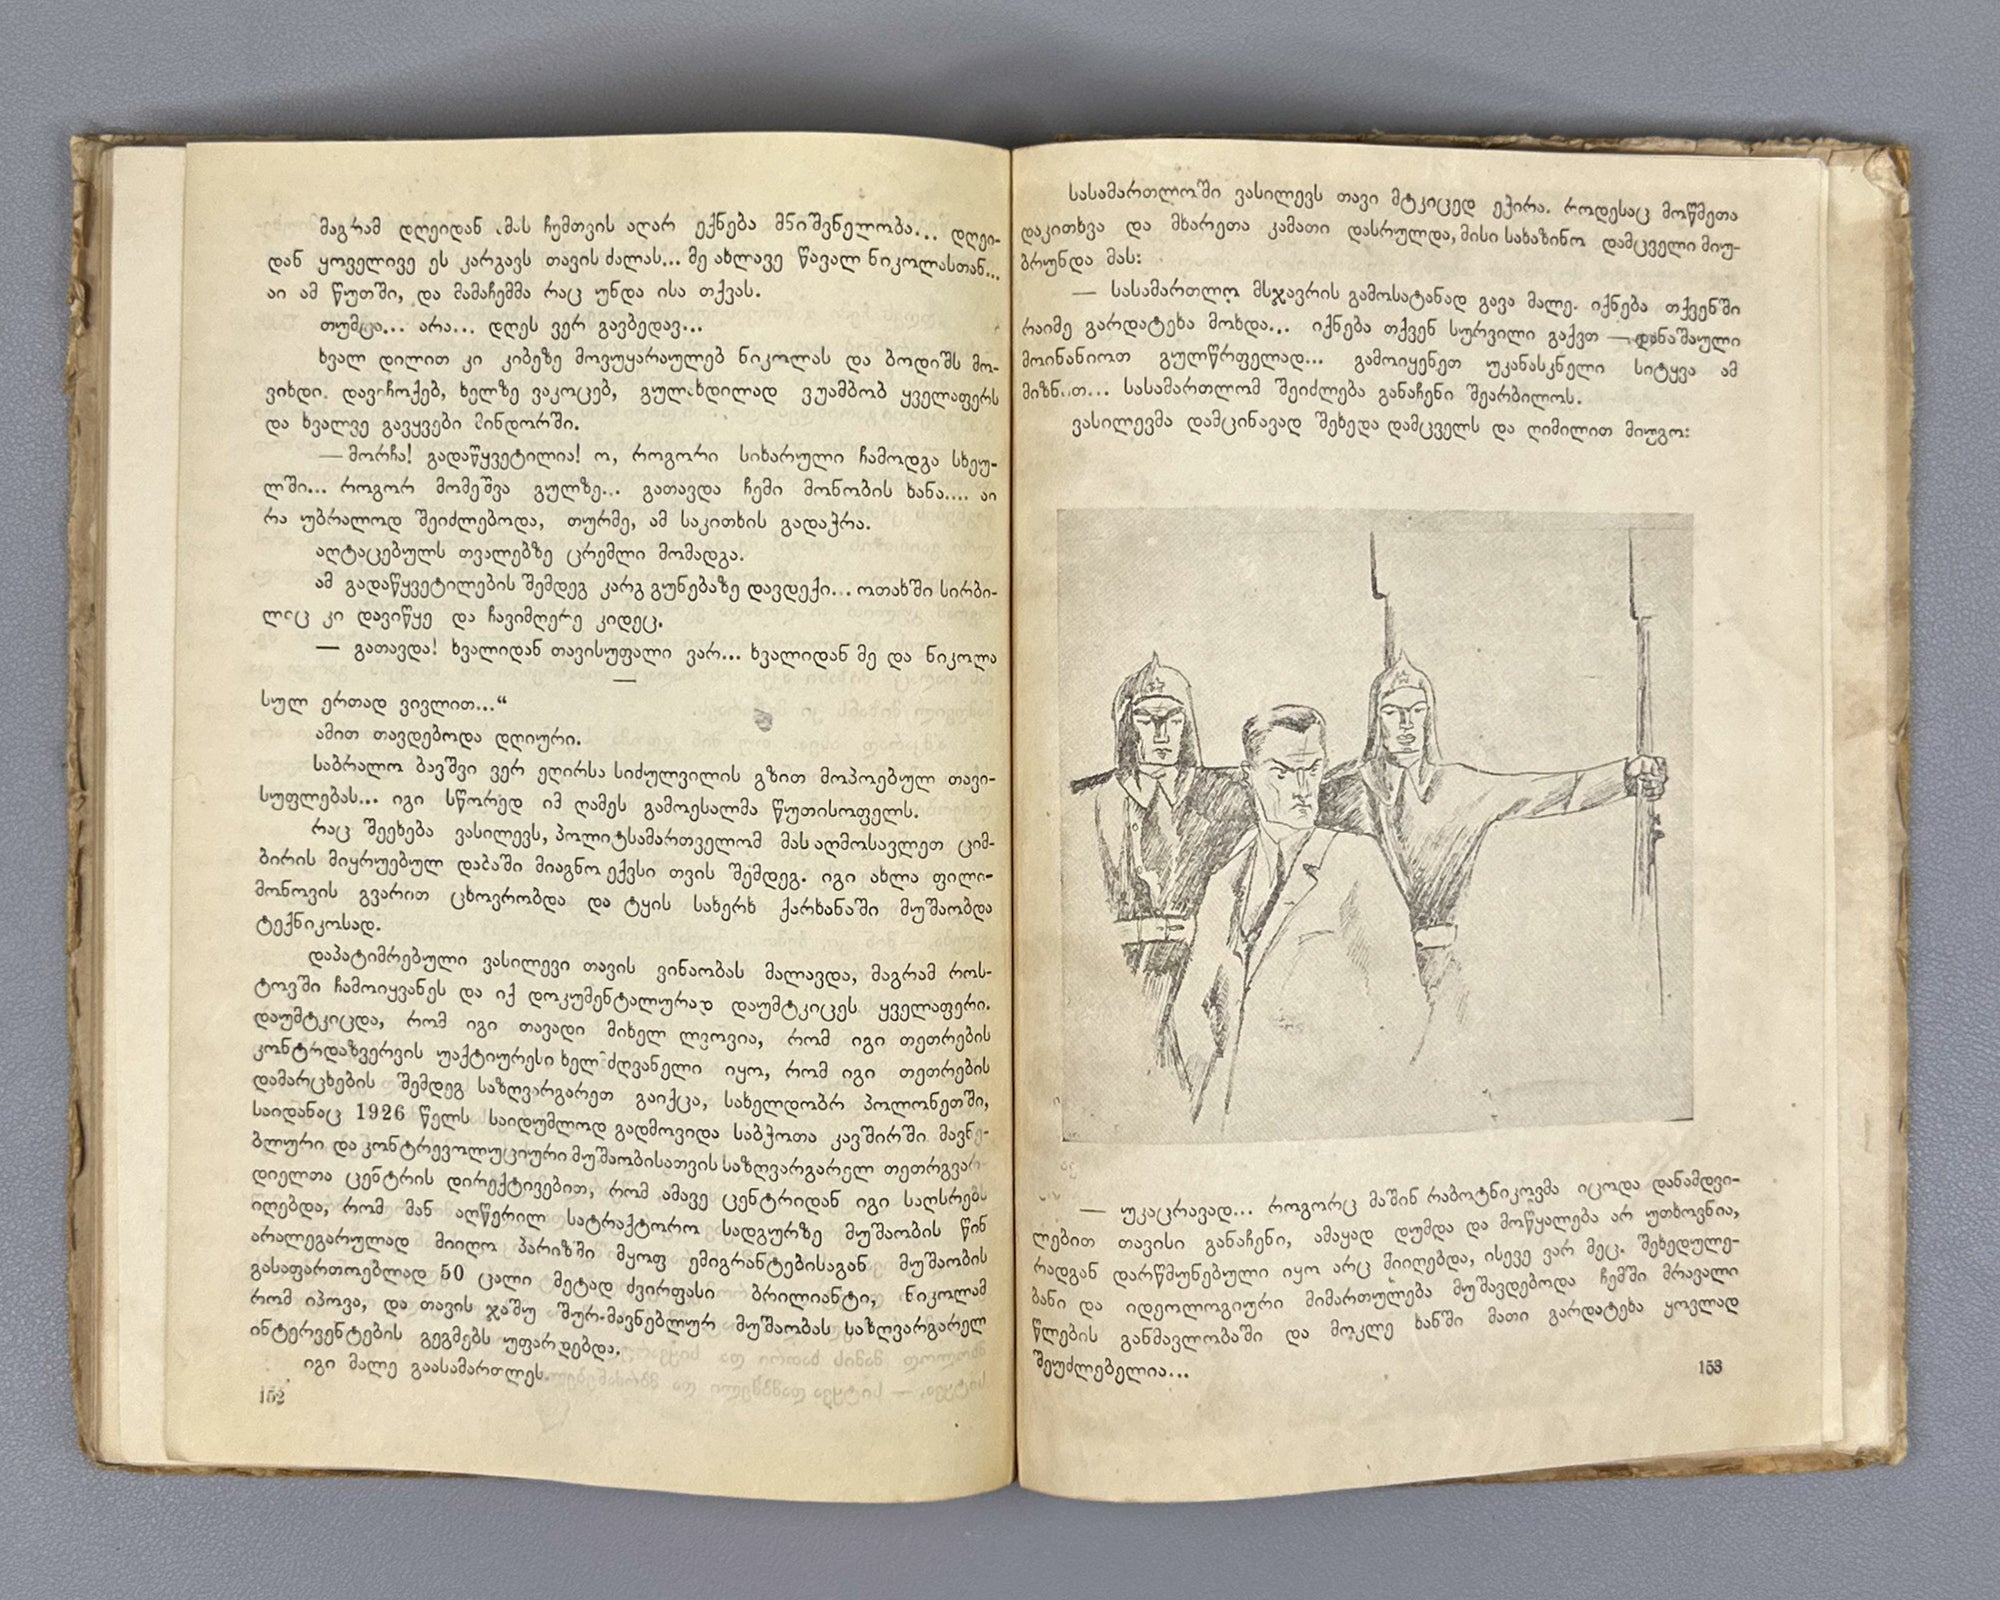 მაგრამ დღეიდან ამას ჩემთვის აღარ ექნება მნიშვნელობა... დღეი-
დან ყოველივე ეს კარგავს თავის ძალას... მე ახლავე წავალ ნიკოლასთან...
აი ამ წუთში, და მამაჩემმა რაც უნდა ისა თქვას.
თუმცა... არა... დღეს ვერ გავბედავ...
ხვალ დილით კი კიბეზე მოვუყარაულებ ნიკოლას და ბოდიშს მო-
ვიხდი. დავიჩოქებ, ხელზე ვაკოცებ, გულახდილად ვუამბობ ყველაფერს
და ხვალვე გავყვები მინდორში.
— მორჩა! გადაწყვეტილია! ო, როგორი სიხარული ჩამოდგა სხეუ-
ლში... როგორ მომეშვა გულზე... გათავდა ჩემი მონობის ხანა.... აი
რა უბრალოდ შეიძლებოდა, თურმე, ამ საკითხის გადაჭრა.
აღტაცებულს თვალებზე ცრემლი მომადგა.
ამ გადაწყვეტილების შემდეგ კარგ გუნებაზე დავდექი... ოთახში სირბი-
ლაც კი დავიწყე და ჩავიმღერე კიდეც.
— გათავდა! ხვალიდან თავისუფალი ვარ... ხვალიდან მე და ნიკოლა
—
სულ ერთად ვივლით...“
ამით თავდებოდა დღიური.
საბრალო ბავშვი ვერ ეღირსა სიძულვილის გზით მოპოებულ თავი-
სუფლებას... იგი სწორედ იმ ღამეს გამოესალმა წუთისოფელს.
რაც შეეხება ვასილევს, პოლიტსამართველომ მას აღმოსავლეთ ციმ-
ბირის მიყრუებულ დაბაში მიაგნო ექვსი თვის შემდეგ. იგი ახლა ფილი-
მონოვის გვარით ცხოვრობდა და ტყის სახერხ ქარხანაში მუშაობდა
ტექნიკოსად.
დაპატიმრებული ვასილევი თავის ვინაობას მალავდა, მაგრამ როს-
ტოვში ჩამოიყვანეს და იქ დოკუმენტალურად დაუმტკიცეს ყველაფერი.
დაუმტკიცდა, რომ იგი თავადი მიხელ ლვოვია, რომ იგი თეთრების
კონტრდაზვერვის უაქტიურესი ხელმძღვანელი იყო, რომ იგი თეთრების
დამარცხების შემდეგ საზღვარგარეთ გაიქცა, სახელდობრ პოლონეთში,
საიდანაც 1926 წელს საიდუმლოდ გადმოვიდა საბჭოთა კავშირში მავნე-
ბლური და კონტრევოლუციური მუშაობისათვის საზღვარგარელ თეთრგვარ-
დიელთა ცენტრის დირექტივებით, რომ ამავე ცენტრიდან იგი საღსრებს
იღებდა, რომ მან აღწერილ სატრაქტორო სადგურზე მუშაობის წინ
არალეგარულად მიიღო პარიზში მყოფ ემიგრანტებისაგან მუშაობის
გასაფართოებლად 50 ცალი მეტად ძვირფასი ბრილიანტი, ნიკოლამ
რომ იპოვა, და თავის ჯაშუშურ-მავნებლურ მუშაობას საზღვარგარელ
ინტერვენტების გეგმებს უფარდებდა.
იგი მალე გაასამართლეს.
152
სასამართლოში ვასილევს თავი მტკიცედ ეჭირა. როდესაც მოწმეთა
დაკითხვა და მხარეთა კამათი დასრულდა, მისი სახაზინო დამცველი მიუ-
ბრუნდა მას:
— სასამართლო მსჯავრის გამოსატანად გავა მალე. იქნება თქვენში
რაიმე გარდატეხა მოხდა... იქნება თქვენ სურვილი გაქვთ — დანაშაული
მოინანიოთ გულწრფელად... გამოიყენეთ უკანასკნელი სიტყვა ამ
მიზნით... სასამართლომ შეიძლება განაჩენი შეარბილოს.
ვასილევმა დამცინავად შეხედა დამცველს და ღიმილით მიუგო:
— უკაცრავად... როგორც მაშინ რაბოტნიკოვმა იცოდა დანამდვი-
ლებით თავისი განაჩენი, ამაყად დუმდა და მოწყალება არ უთხოვნია,
რადგან დარწმუნებული იყო არც მიიღებდა, ისევე ვარ მეც. შეხედულე-
ბანი და იდეოლოგიური მიმართულება მუშავდებოდა ჩემში მრავალი
წლების განმავლობაში და მოკლე ხანში მათი გარდატეხა ყოვლად
შეუძლებელია...
153